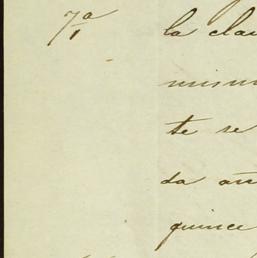 7ª la clau
mism
te se
da añ
quince